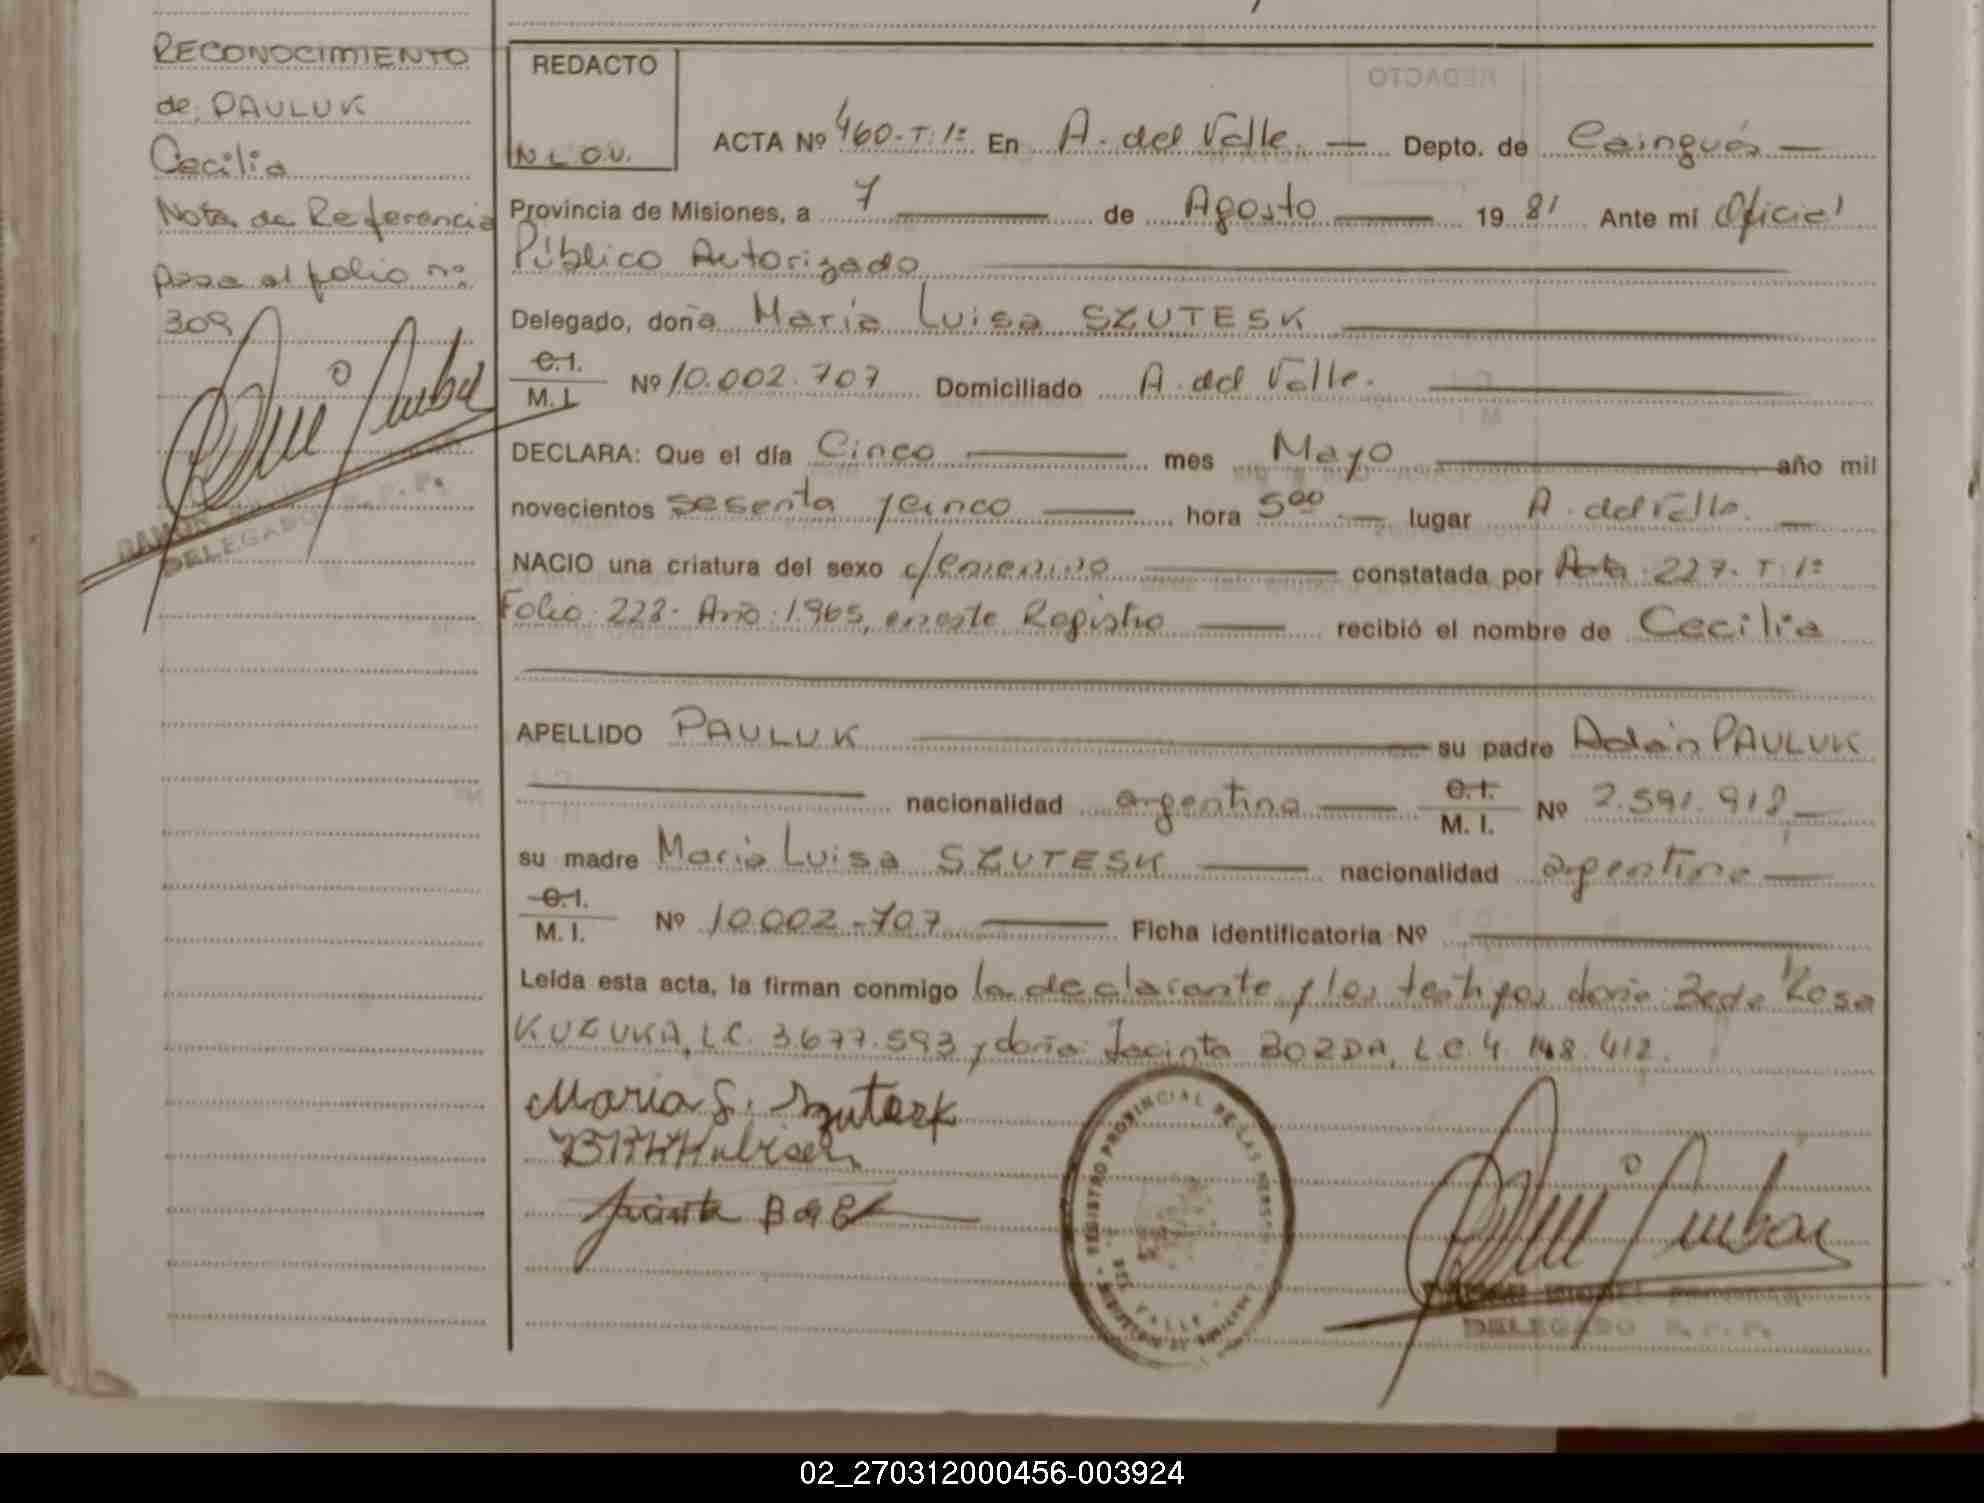 RECONOCIMIENTO
de PAULUK
Cecilia
Nota de Referencia
pasa al folio nº
309
DELEGADO R. P. P.
REDACTO
N L O V.
ACTA Nº 460-T:1º En A. del Valle. — Depto. de Cainguás —
Provincia de Misiones, a 7 — de Agosto — 19 81 Ante mí Oficial
Público Autorizado
Delegado, doña María Luisa SZUTESK
C.I.
M. I. Nº 10.002.707 Domiciliado A. del Valle.
DECLARA: Que el día Cinco — mes Mayo — año mil
novecientos sesenta y cinco — hora 5:00 — lugar A. del Valle. —
NACIO una criatura del sexo femenino — constatada por Acta 227. T:1º
Folio 228. Año 1.965, en este Registro — recibió el nombre de Cecilia
APELLIDO PAULUK — su padre Adán PAULUK
nacionalidad argentina — C.I.
M. I. Nº 2.591.918 —
su madre María Luisa SZUTESK — nacionalidad argentina —
C.I.
M. I. Nº 10.002-707 — Ficha identificatoria Nº —
Leída esta acta, la firman conmigo la declarante y los testigos doña Rosa
KUZUKA, L.C. 3.677.593 y doña Jacinta BOZDA, L.C. 4.148.412.
Maria L. Szutesk
REGISTRO PROVINCIAL DE LAS PERSONAS
DEL VALLE
DELEGADO R. P. P.
02_270312000456-003924